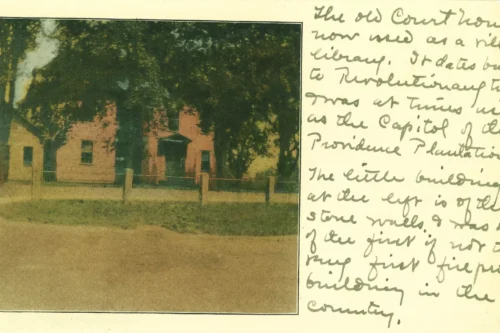 The old Court hou
now used as a vil
library. It dates ba
to Revolutionary t
& was at times us
as the Capitol of th
Providence Plantation
The little building
at the left is of th
stone walls & was
of the first if not t
very first fire pr
building in the
country.